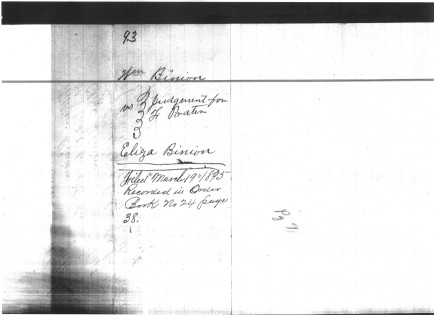 93
Wm Binion
vs } Judgment from
Eliza Binion
Filed March 19th 1895
Recorded in Order
Book No 24 page
38.